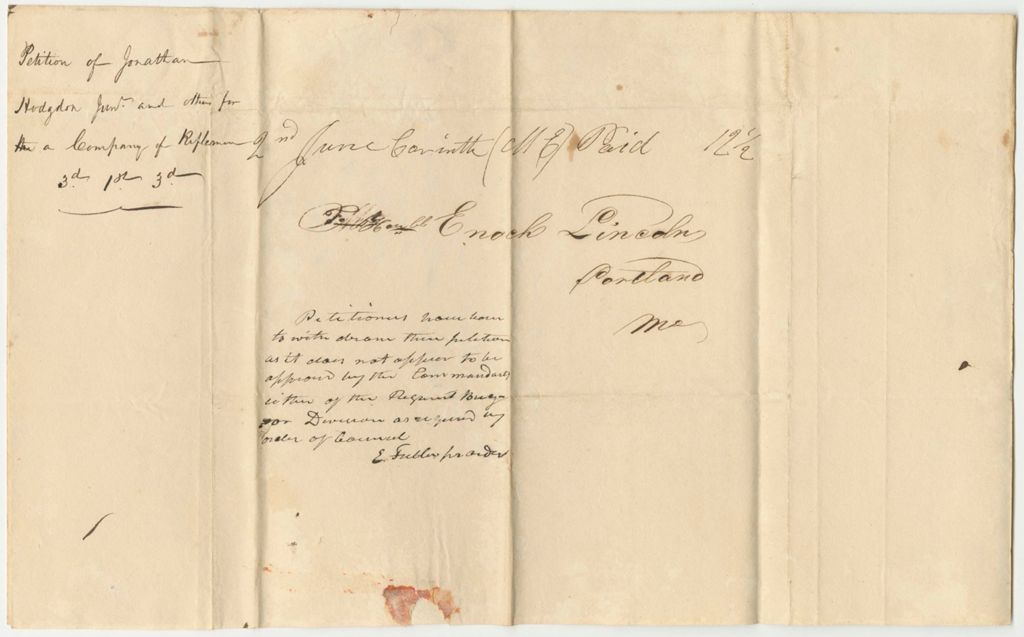 Petition of Jonathan
Hodgdon Junr. and others for
a Company of Riflemen
3d 1st 3d
2nd June Corinth (ME) Paid 12 1/2
Honbl Enoch Lincoln
Portland
Me
Petitioners have leave
to with draw their petition
as it does not appear to be
approved by the Commandants
either of the Regiment Brig
or Division as required by
order of Council
E. Fuller pr order